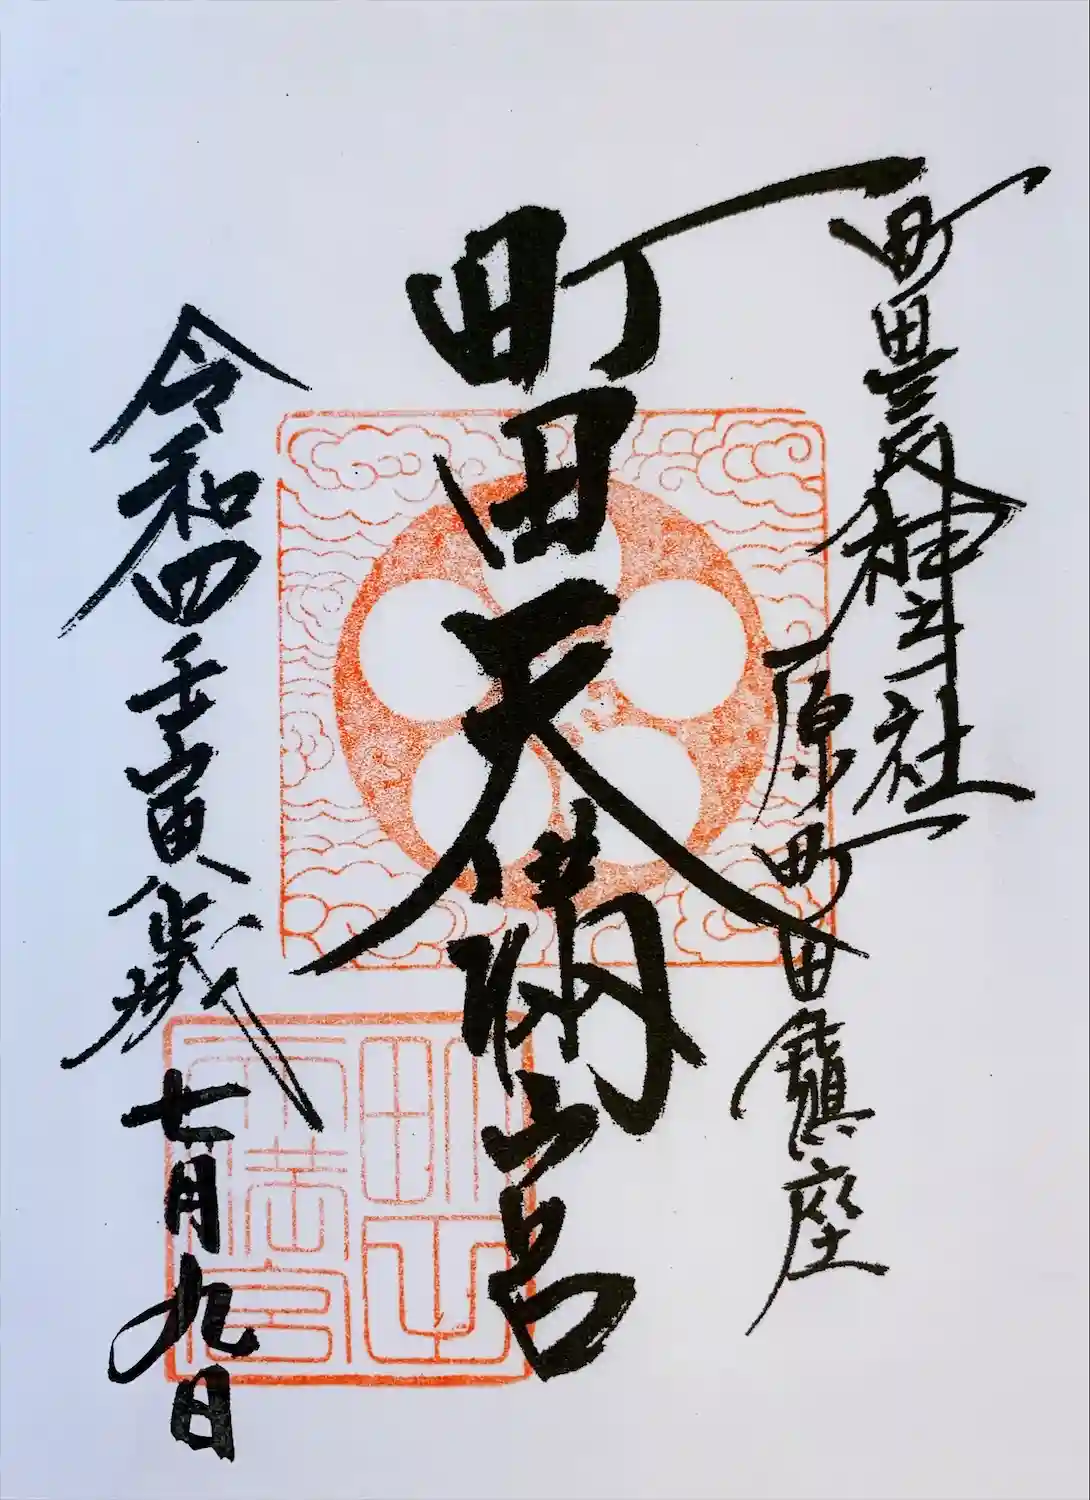 町田 神社
原町田鎮座
町田天満宮
令和四壬寅歳七月九日
天満宮